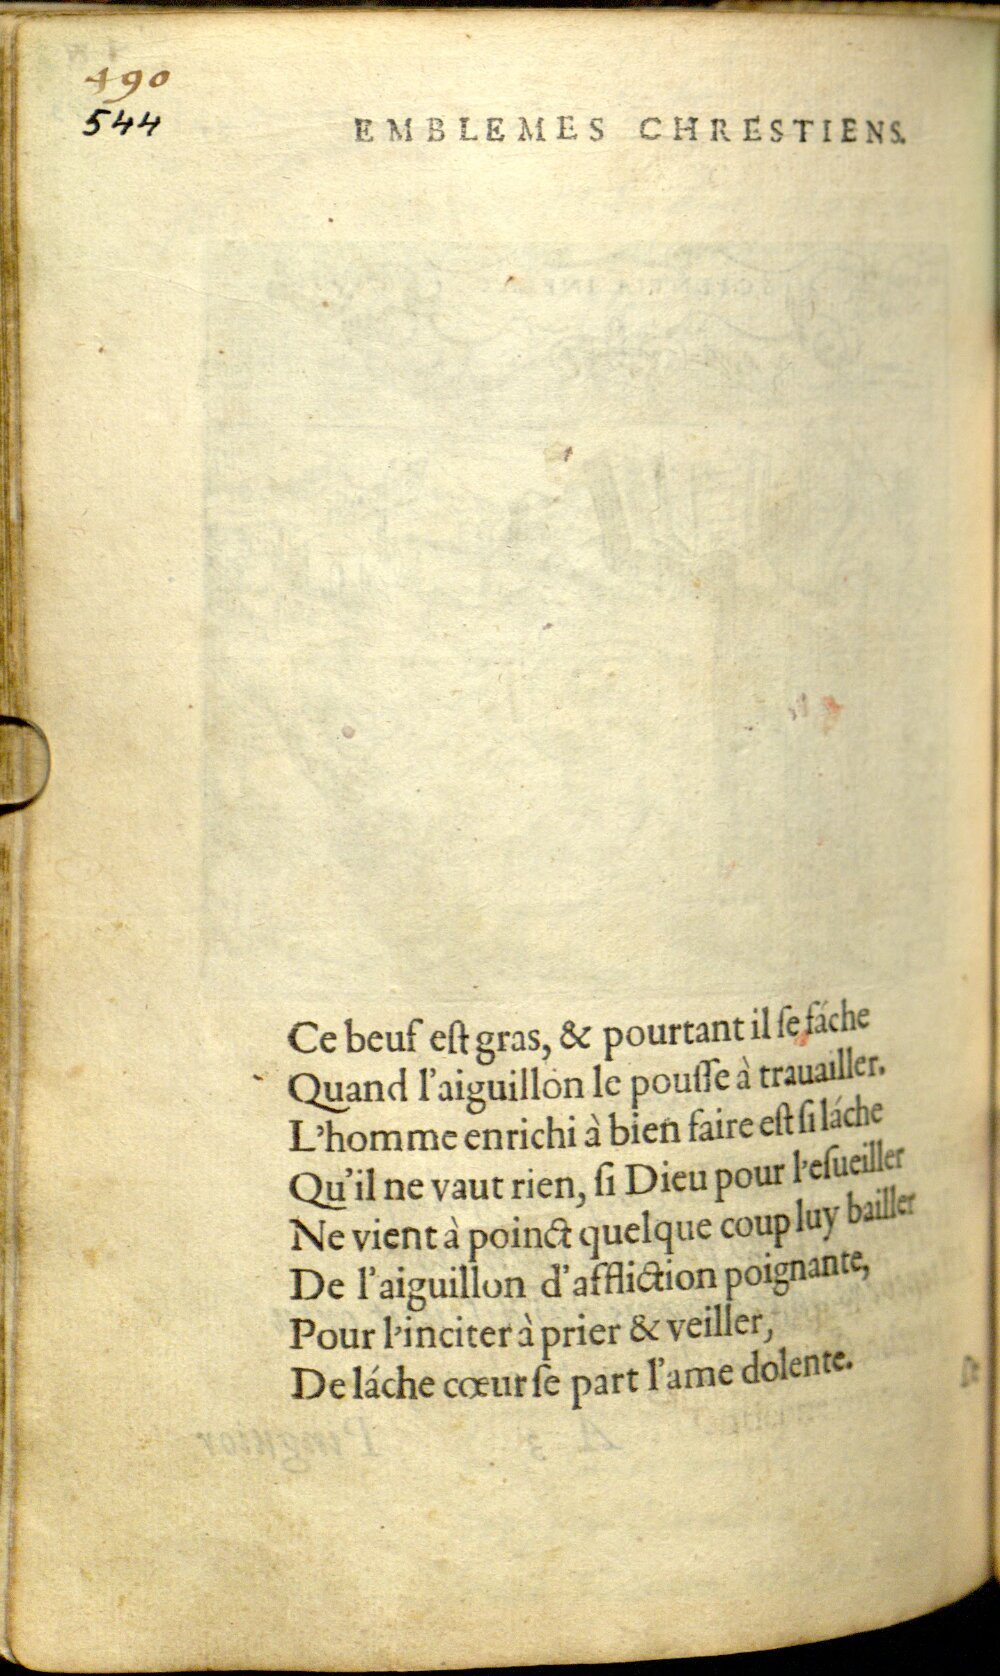 490
544
EMBLEMES CHRESTIENS.
Ce beuf eſt gras, & pourtant il ſe fáche
Quand l'aiguillon le pouſſe à trauailler.
L'homme enrichi à bien faire eſt ſi láche
Qu'il ne vaut rien, ſi Dieu pour l'eſueiller
Ne vient à poinct quelque coup luy bailler
De l'aiguillon d'affliction poignante,
Pour l'inciter à prier & veiller,
De láche cœur ſe part l'ame dolente.
A 3
Pinguior